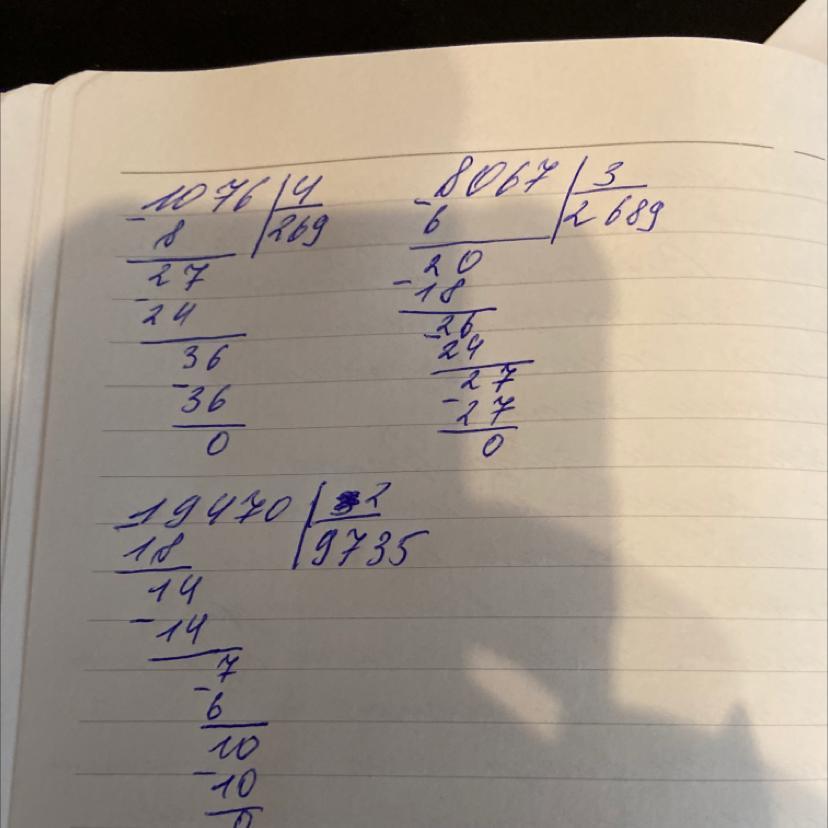 -1076 |4
8 |269
27
-24
36
-36
0
-8067 |3
6 |2689
20
-18
26
-24
27
-27
0
-19470 |2
18 |9735
14
-14
7
-6
10
-10
0